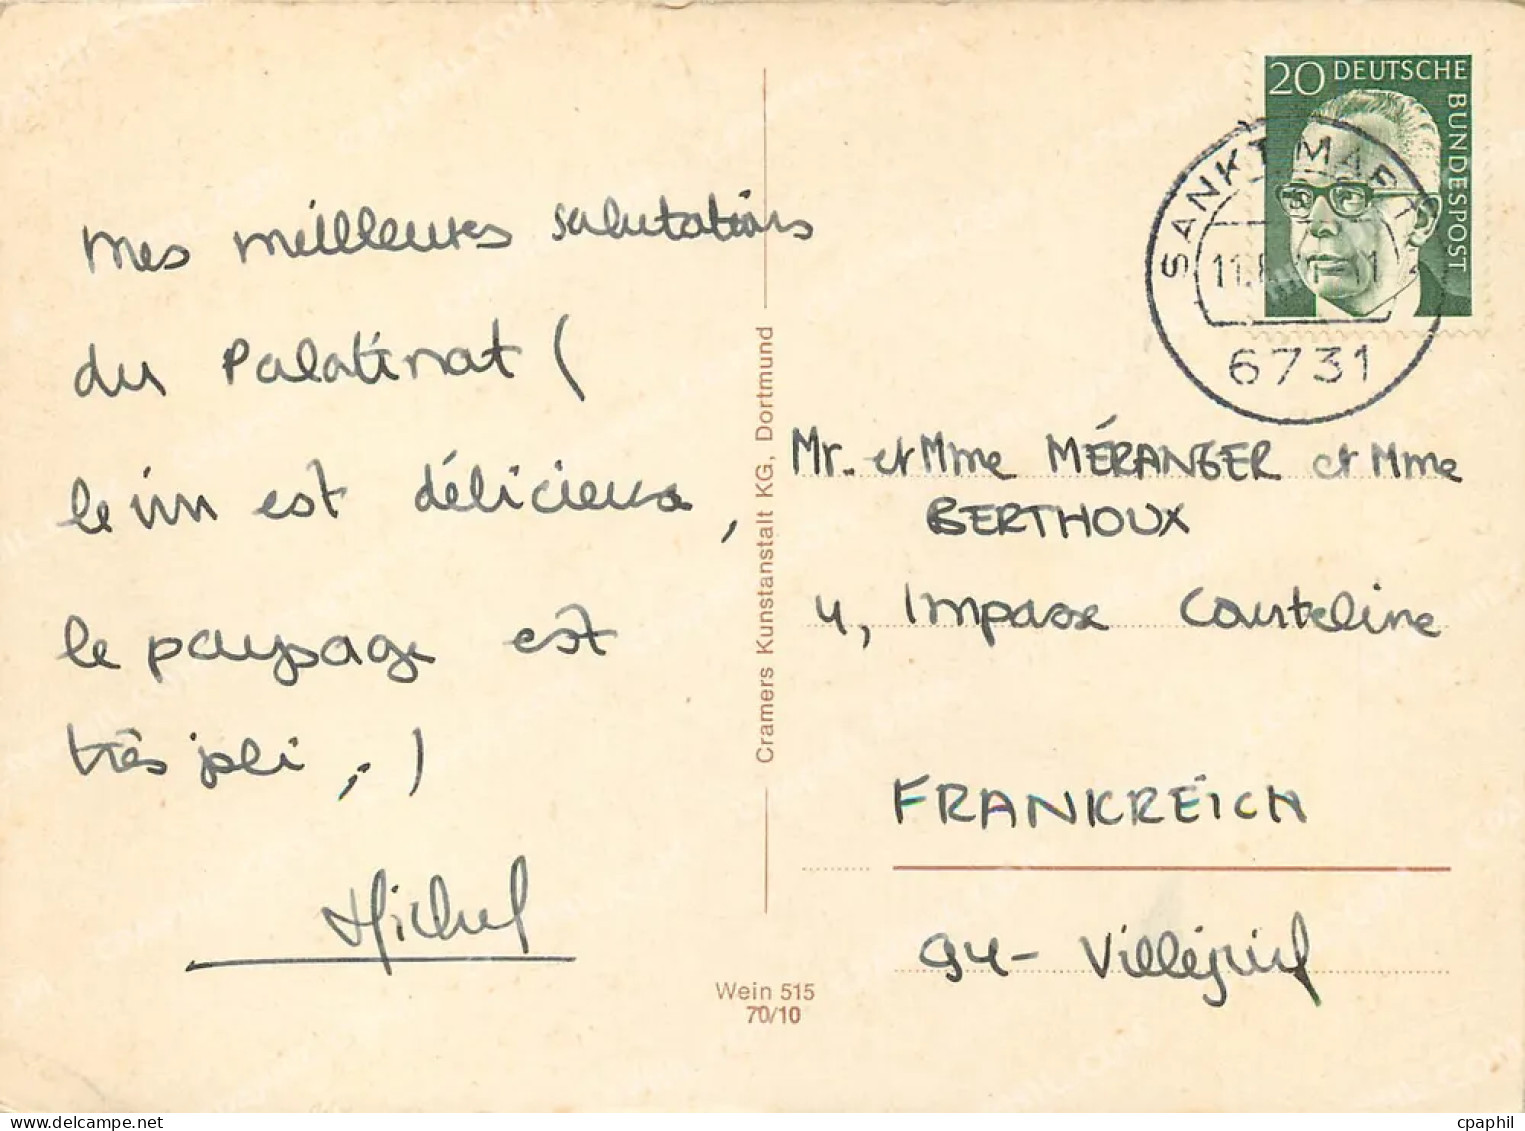 Mes meilleures salutations
du Palatinat (
le vin est délicieux,
le paysage est
très joli,.)
Michel
Cramers Kunstanstalt KG, Dortmund
Wein 515
70/10
20 DEUTSCHE
BUNDESPOST
SANKT MART
6731
Mr. et Mme MÉRANGER et Mme
BERTHOUX
4, Impasse Courteline
FRANKREICH
94- Villejuif
cpaphil